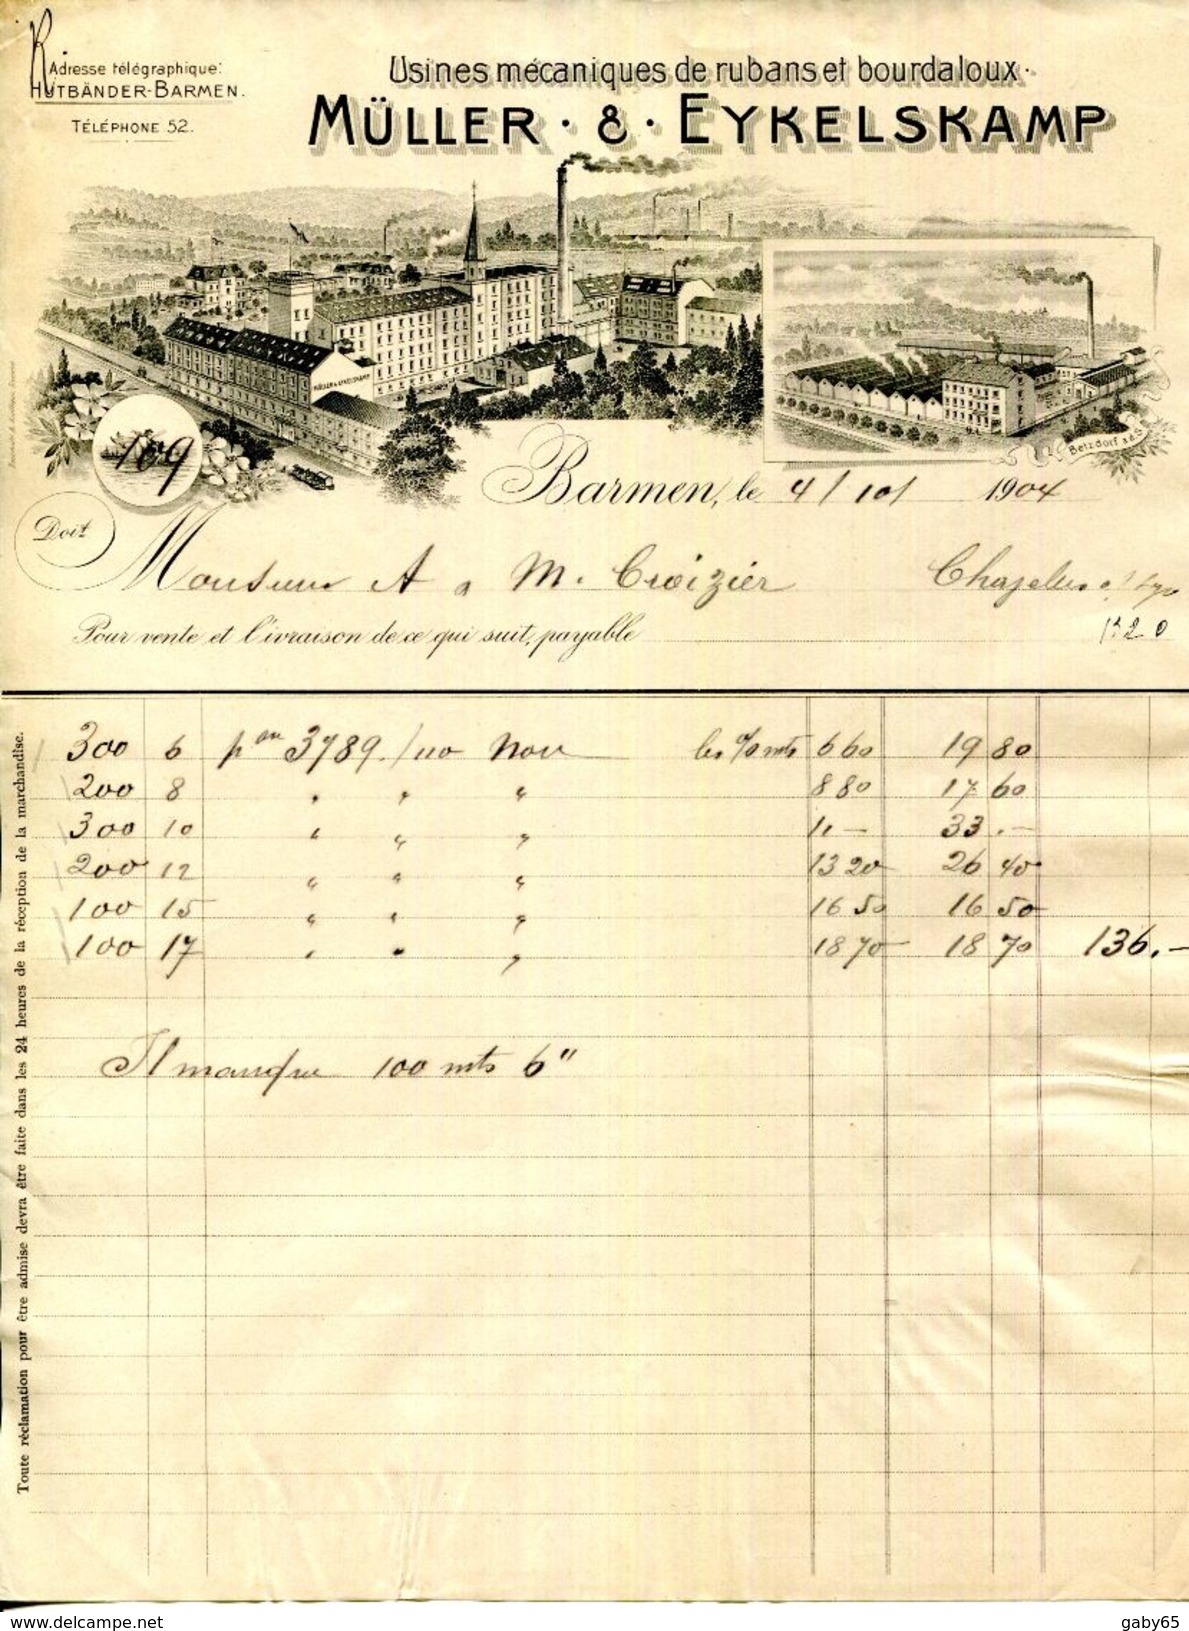 Adresse télégraphique:
HUTBÄNDER-BARMEN.
TÉLÉPHONE 52.
Usines mécaniques de rubans et bourdaloux.
MÜLLER · & · EYKELSKAMP
MÜLLER & EYKELSKAMP
Betzdorf a.d.S.
109
Barmen, le 4/10/ 1904
Doit
Monsieur A M. Croizier
Pour vente et livraison de ce qui suit, payable
300 6 3789./110 Noir les %mts 6 60 19 80
200 8 " " " 8 80 17 60
300 10 " " " 11 — 33 . —
200 12 " " " 13 20 26 40
100 15 " " " 16 50 16 50
100 17 " " " 18 70 18 70 136.—
Il manque 100 mts 6"
Toute réclamation pour être admise devra être faite dans les 24 heures de la réception de la marchandise.
www.delcampe.net
gaby65